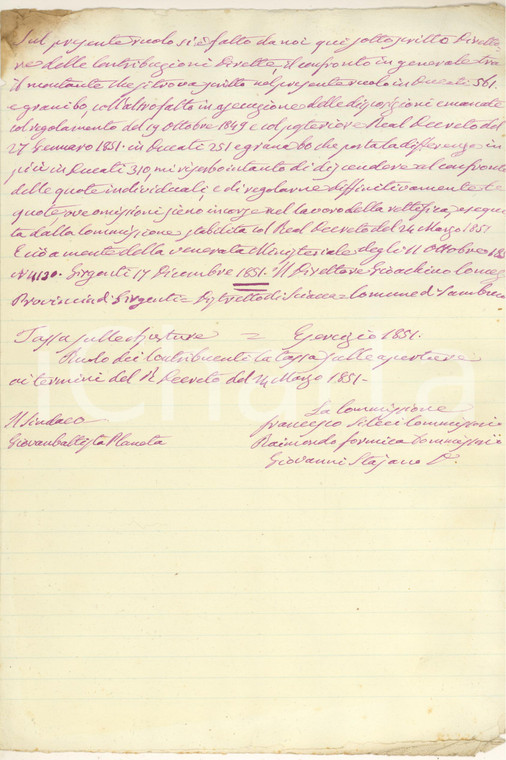 Sul presente ruolo si è fatto da noi qui sottoscritto Diretto
re delle Contribuzioni Dirette, il confronto in generale tra
il montante che si trova scritto nel presente ruolo in Ducati 561.
e grani 60, coll'altro fatto in esecuzione delle disposizioni emanate
col regolamento del 19 Ottobre 1849 e col posteriore Real Decreto del
27 Gennaro 1851. in Ducati 251 e grana 60 che porta la differenza in
più in Ducati 310, mi riserbo intanto di discendere al confronto
delle quote individuali, e di regolarne diffinitivamente le
quote ove omissioni sieno incorse nel lavoro della rettifica, esegui
ta dalla Commissione stabilita col Real Decreto del 24 Marzo 1851
E ciò a mente della venerata Ministeriale degli 11 Ottobre 185
N. 4120. Girgenti 17 Dicembre 1851. Il Direttore Gioachino
Provincia di Girgenti = Distretto di Sciacca = Comune di Sambuca
Tassa sulle aperture = Esercizio 1851.
Ruolo dei Contribuenti la tassa sulle aperture
ai termini del R. Decreto del 24 Marzo 1851 -
La Commissione
Il Sindaco
Francesco Commissario
Giovanbattista Planeta
Raimondo Formica Commissario
Giovanni Stajano
iCharta